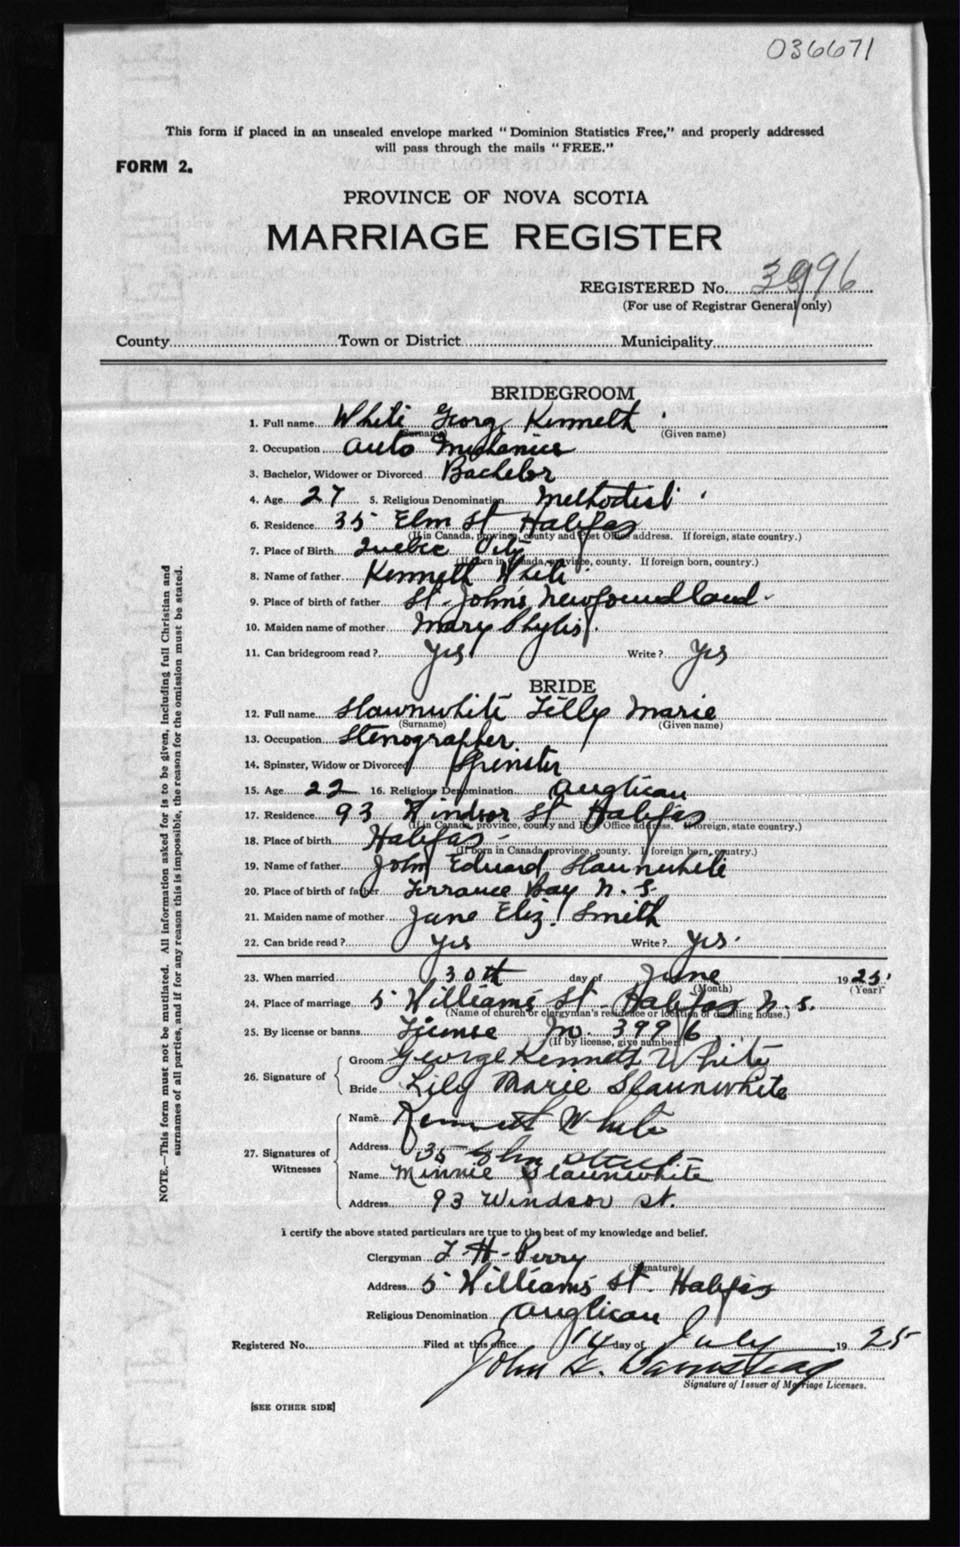 036671
This form if placed in an unsealed envelope marked "Dominion Statistics Free," and properly addressed
will pass through the mails "FREE."
FORM 2.
PROVINCE OF NOVA SCOTIA
MARRIAGE REGISTER
REGISTERED No. 3996
(For use of Registrar General only)
County Town or District Municipality
BRIDEGROOM
1. Full name White George Kenneth
(Surname) (Given name)
2. Occupation Auto Mechanics
3. Bachelor, Widower or Divorced Bachelor
4. Age 27 5. Religious Denomination Methodist
6. Residence 35 Elm St Halifax
(If in Canada, province, county and Post Office address. If foreign, state country.)
7. Place of Birth Quebec City
(If born in Canada, province, county. If foreign born, country.)
8. Name of father Kenneth White
9. Place of birth of father St. Johns, Newfoundland
10. Maiden name of mother Mary Phylis
11. Can bridegroom read? Yes Write? Yes
BRIDE
12. Full name Slawnwhite Lilly Marie
(Surname) (Given name)
13. Occupation Stenographer
14. Spinster, Widow or Divorced Spinster
15. Age 22 16. Religious Denomination Anglican
17. Residence 93 Windsor St Halifax
(If in Canada, province, county and Post Office address. If foreign, state country.)
18. Place of birth Halifax -
(If born in Canada, province, county. If foreign born, country.)
19. Name of father John Edward Slaunwhite
20. Place of birth of father Terrance Bay N. S.
21. Maiden name of mother Jane Eliz. Smith
22. Can bride read? Yes Write? Yes.
23. When married 30th day of June 1925
(Month) (Year)
24. Place of marriage 5 Williams St. Halifax N. S.
(Name of church or clergyman's residence or location of dwelling house.)
25. By license or banns License No. 39976
(If by license, give number)
26. Signature of Groom George Kenneth White
Bride Lily Marie Slaunwhite
27. Signatures of Witnesses Name Kenneth White
Address 35 Elm Street
Name Minnie Slaunwhite
Address 93 Windsor St.
I certify the above stated particulars are true to the best of my knowledge and belief.
Clergyman T. H. Perry
(Signature)
Address 5 Williams St. Halifax
Religious Denomination Anglican
Registered No. Filed at this office 14 day of July 1925
John A.
Signature of Issuer of Marriage Licenses.
[SEE OTHER SIDE]
NOTE.—This form must not be mutilated. All information asked for is to be given, including full Christian and
surnames of all parties, and if for any reason this is impossible, the reason for the omission must be stated.